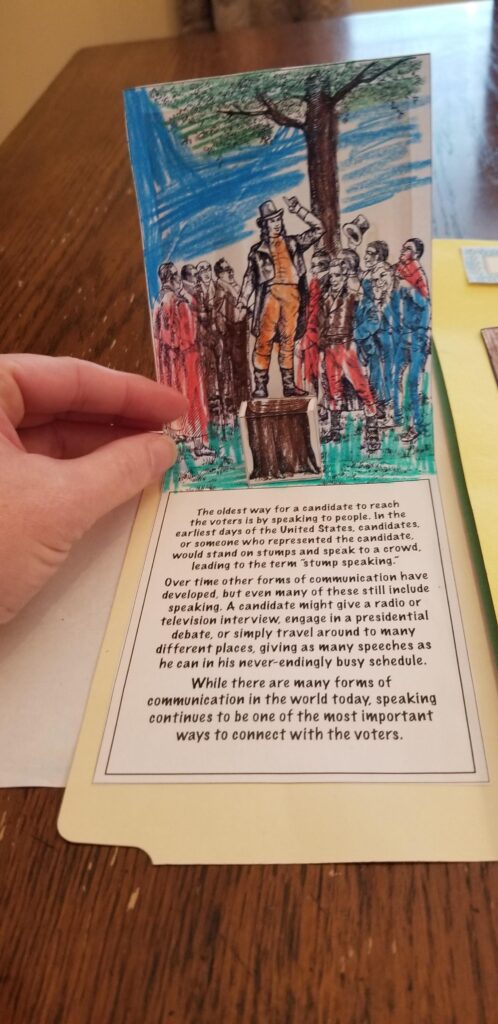 The oldest way for a candidate to reach
the voters is by speaking to people. In the
earliest days of the United States, candidates,
or someone who represented the candidate,
would stand on stumps and speak to a crowd,
leading to the term "stump speaking."
Over time other forms of communication have
developed, but even many of these still include
speaking. A candidate might give a radio or
television interview, engage in a presidential
debate, or simply travel around to many
different places, giving as many speeches as
he can in his never-endingly busy schedule.
While there are many forms of
communication in the world today, speaking
continues to be one of the most important
ways to connect with the voters.